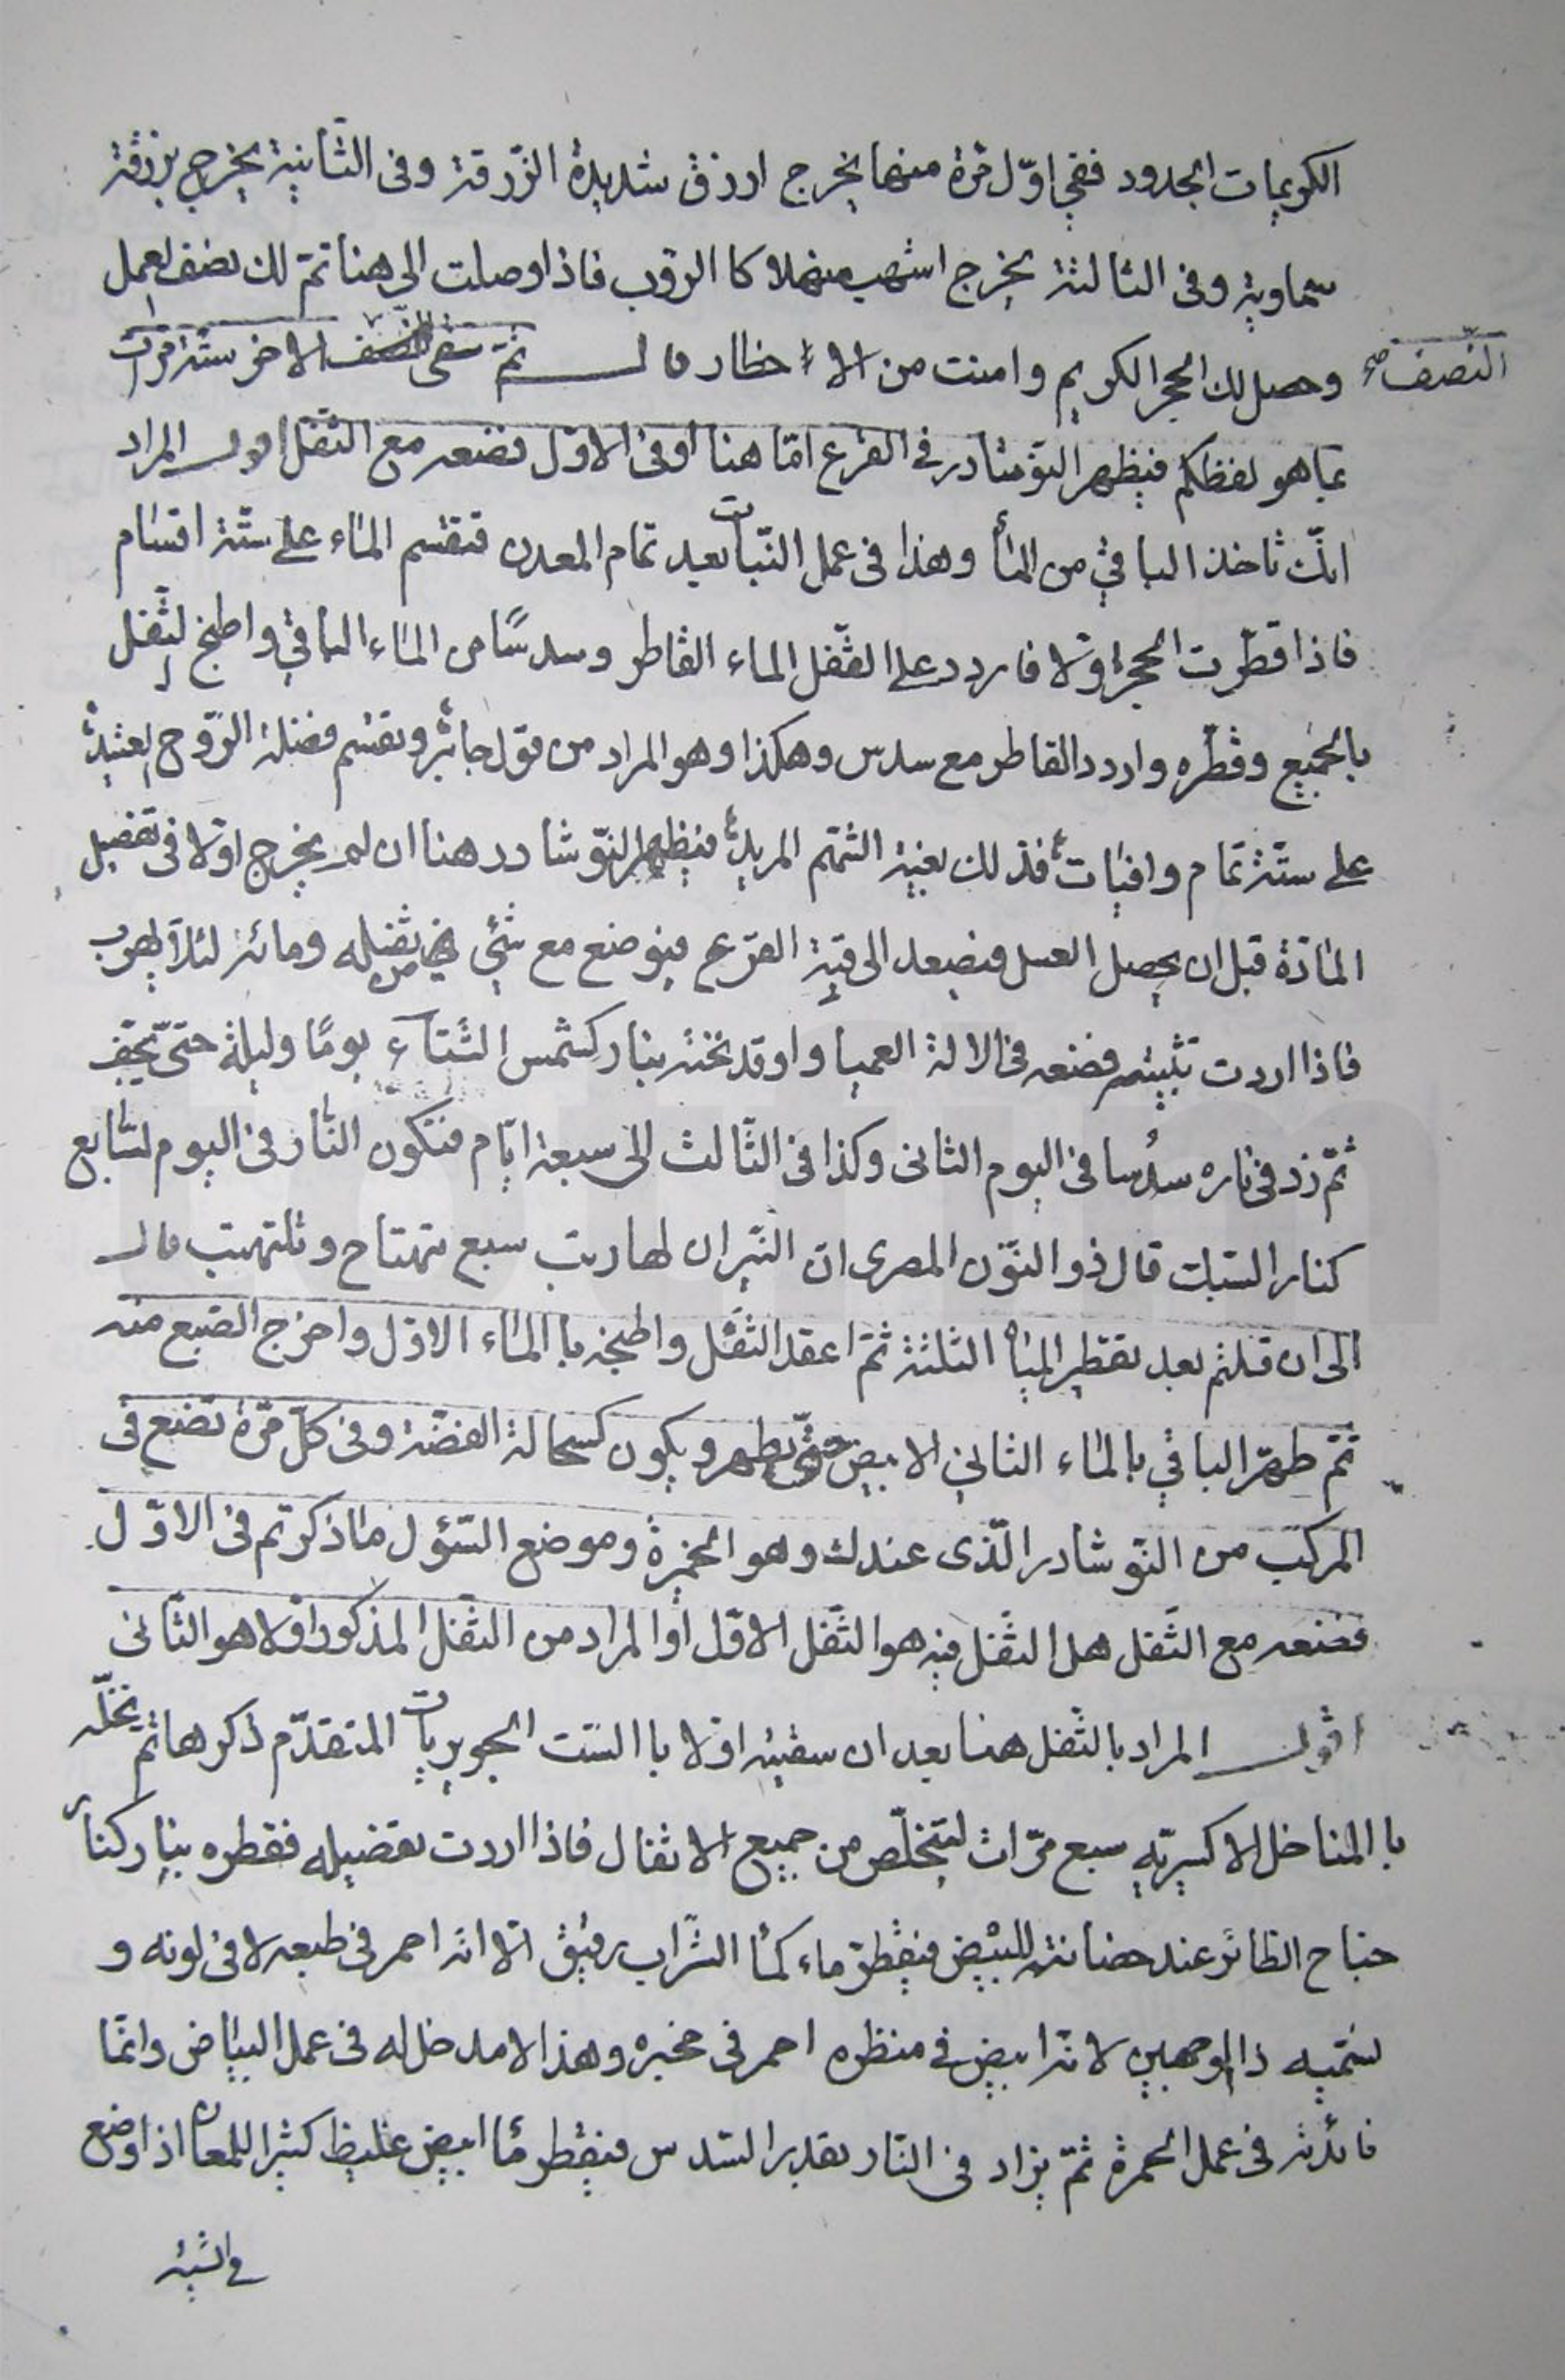 الكريمات الجدود ففى اوّل مرّة منها يخرج ازرق شديدة الزّرقة وفى الثّانية يخرج بزرقة
سماوية وفى الثالثة يخرج اشهب كا الروب فاذا وصلت الى هنا تمّ لك نصف العمل
وحصل لك الحجر الكريم وامنت من الاخطار قال ثمّ سقى النّصف الاخر ستّة مرّات
النّصف صح
بما هو لفظكم فيظهر النوشادر فى القرع امّا هنا او فى الاوّل فضعه مع الثّفل اقول المراد
انّك تاخذ الباقي من الماء وهذا فى عمل النّبات بعد تمام المعدن فتقسم الماء على ستّة اقسام
فاذا قطّرت الحجر اوّلا فاردد على الثّفل الماء القاطر وسدسًا من الماء الباقي واطبخ الثّفل
بالجميع وقطّره واردد القاطر مع سدس وهكذا وهو المراد من قول جابر وتقسّم فضلة الرّوح العتيدة
على ستّة تمام وافيات فذلك بغية المريد فيظهر النّوشادر هنا ان لم يخرج اوّلا فى تفصيل
المادّة قبل ان يحصل الغسل فيصعد الى قبّة القرع فيوضع مع شئ من ثفله ومائه لئلا يهرب
فاذا اردت تثبيته فضعه فى الالة العميا واوقد تحته بنار كشمس الشّتاء يومًا وليلة حتّى يجفّ
ثمّ زد فى ناره سدُسا فى اليوم الثانى وكذا فى الثّالث الى سبعة ايّام فتكون النّار فى اليوم السّابع
كنار السّبك قال ذو النّون المصرى انّ النّيران لها رتب سبع تهتاج وتلتهب قال
الى ان قلتم بعد تقطير المياه الثلثة ثمّ اعقد الثّفل واطبخه با الماء الاوّل واخرج الصّبغ منه
ثمّ طهّر الباقي بالماء الثاني الابيض حتّى يطهر ويكون كسحالة الفضّة وفى كلّ مرّة تضع فى
المركّب من النّوشادر الّذى عندك وهو الخمرة وموضع السّؤل ما ذكرتم فى الاوّل
فضعه مع الثّفل هل الثّفل فيه هو الثّفل الاوّل أو المراد من الثّفل المذكور اوّلا هو الثّانى
اقول المراد بالثّفل هنا بعد ان سقيته اوّلا با السّت الجويريات المتقدّم ذكرها ثمّ نخلّه
با المناخل الاكسيريّه سبع مرّات ليتخلّص من جميع الاثقال فاذا اردت تفصيله فقطره بنار كنار
جناح الطائر عند حضانته للبيض فيقطر ماء كما الشّراب رقيق الّا انّه احمر فى طبعه لا فى لونه و
نسمّيه ذا الوجهين لانّه ابيض في منظره احمر فى مخبره وهذا لا مدخل له فى عمل البياض وانّما
فائدته فى عمل الحمرة ثمّ يزاد فى النّار بقدر السّدس فيقطر مًا ابيض غليظ كثير اللمعان اذا وضع
فى الشّيئ